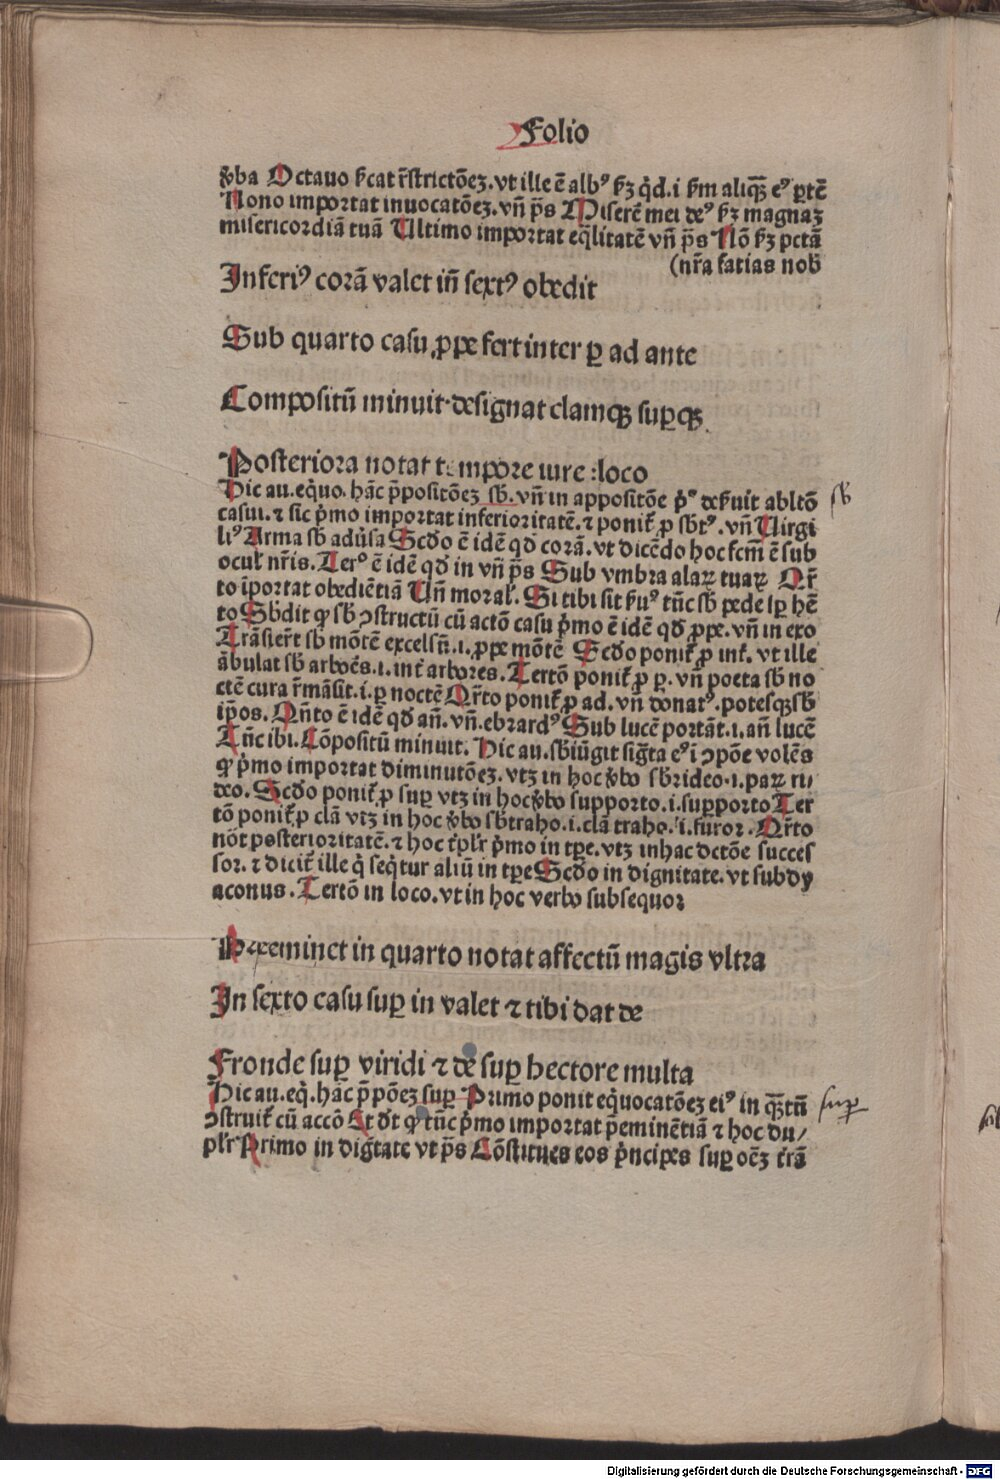 Folio
v̾ba Octauo ẜcat r̄strictōeꝫ. vt ille ē albꝰ ẜꝫ q̇d. i ẜm aliqȝ̄ eꝰ ꝑtē
Nono importat inuocatōeꝫ. vn̄ p̄s Miserē mei deꝰ ẜꝫ magnaꝫ
misericordiā tuā Ultimo importat eq̄litatē vn̄ p̄s Nō ẜꝫ pctā
(nr̄a fatias nob̄
Inferiꝰ corā valet in̄ sextꝰ obedit
Sub quarto casu ꝓpe fert inter ꝑ ad ante
Compositū minuit designat clamqꝫ suꝑqꝫ
Posteriora notat tempore iure: loco
Hic au. eq̇uo. hāc p̄positōeꝫ sb̄. vn̄ in appositōe pͥꝰ deẜuit ablt̄o sb̄
casui. ⁊ sic pͥmo importat inferioritatē. ⁊ ponit̄ ꝓ sb̄tꝰ. vn̄ Uirgi
liꝰ Arma sb̄ adūsa Scd̄o ē idē qd̄ corā. vt dicēdo hoc fcm̄ ē sub
ocul̄ nr̄is. Terꝰ ē idē qd̄ in vn̄ p̄s Sub vmbra alaꝝ tuaꝝ Qr̄
to īportat obediētiā Un̄ moral̄. Si tibi sit ẜuꝰ tūc sb̄ pede sꝑ hē
to Sb̄dit ꝙ sb̄ ꝯstructū cū actō casu pͥmo ē idē qd̄ ꝓpe. vn̄ in exo
Trāsier̄t sb̄ mōtē excelsū. i. ꝓpe mōtē Scd̄o ponit̄ ꝓ int̄. vt ille
ābulat sb̄ arboēs. i. int̄ arbores. Tertō ponit̄ ꝓ ꝑ. vn̄ poeta sb̄ no
ctē cura r̄māsit. i. ꝑ noctē Qr̄to ponit̄ ꝓ ad. vn̄ donatꝰ. potesqꝫ sb̄
ip̄os. Qn̄to ē idē qd̄ an̄. vn̄. ebrardꝰ Sub lucē portāt. i. an̄ lucē
Tūc ibi. Cōpositū minuit. Hic au. sb̄iūgit sigt̄a eꝰ ī ꝯpōe volēs
ꝙ pͥmo importat diminutōeꝫ. vtꝫ in hoc v̾bo sb̄rideo. i. paꝝ ri/
deo. Scd̄o ponit̄ ꝓ suꝑ vtꝫ in hoc v̾bo supporto. i. suꝑporto Ter
tō ponit̄ ꝓ clā vtꝫ in hoc v̾bo sb̄traho. i. clā traho. i. furor. Qr̄to
nōt posterioritatē. ⁊ hoc tͥpl̄r pͥmo in tꝑe. vtꝫ in hac dctōe succes
sor. ⁊ dicit̄ ille q̇ seq̇tur aliū in tꝑe Scd̄o in dignitate. vt subdy
aconus. Tertō in loco. vt in hoc verbo subsequor
Preeminet in quarto notat affectū magis vltra
In sexto casu suꝑ in valet ⁊ tibi dat de
Fronde suꝑ viridi ⁊ de suꝑ hectore multa
Hic au. eq̇. hāc p̄pōeꝫ suꝑ Primo ponit eq̇uocatōeꝫ eiꝰ in qȝ̄tū suꝑ
ꝯstruit̄ cū accō Et dt̄ ꝙ tūc pͥmo importat p̄eminētiā ⁊ hoc du/
pl̄r Primo in digt̄ate vt p̄s Cōstitues eos pͥncipes suꝑ oēꝫ tr̄ā
Digitalisierung gefördert durch die Deutsche Forschungsgemeinschaft - DFG